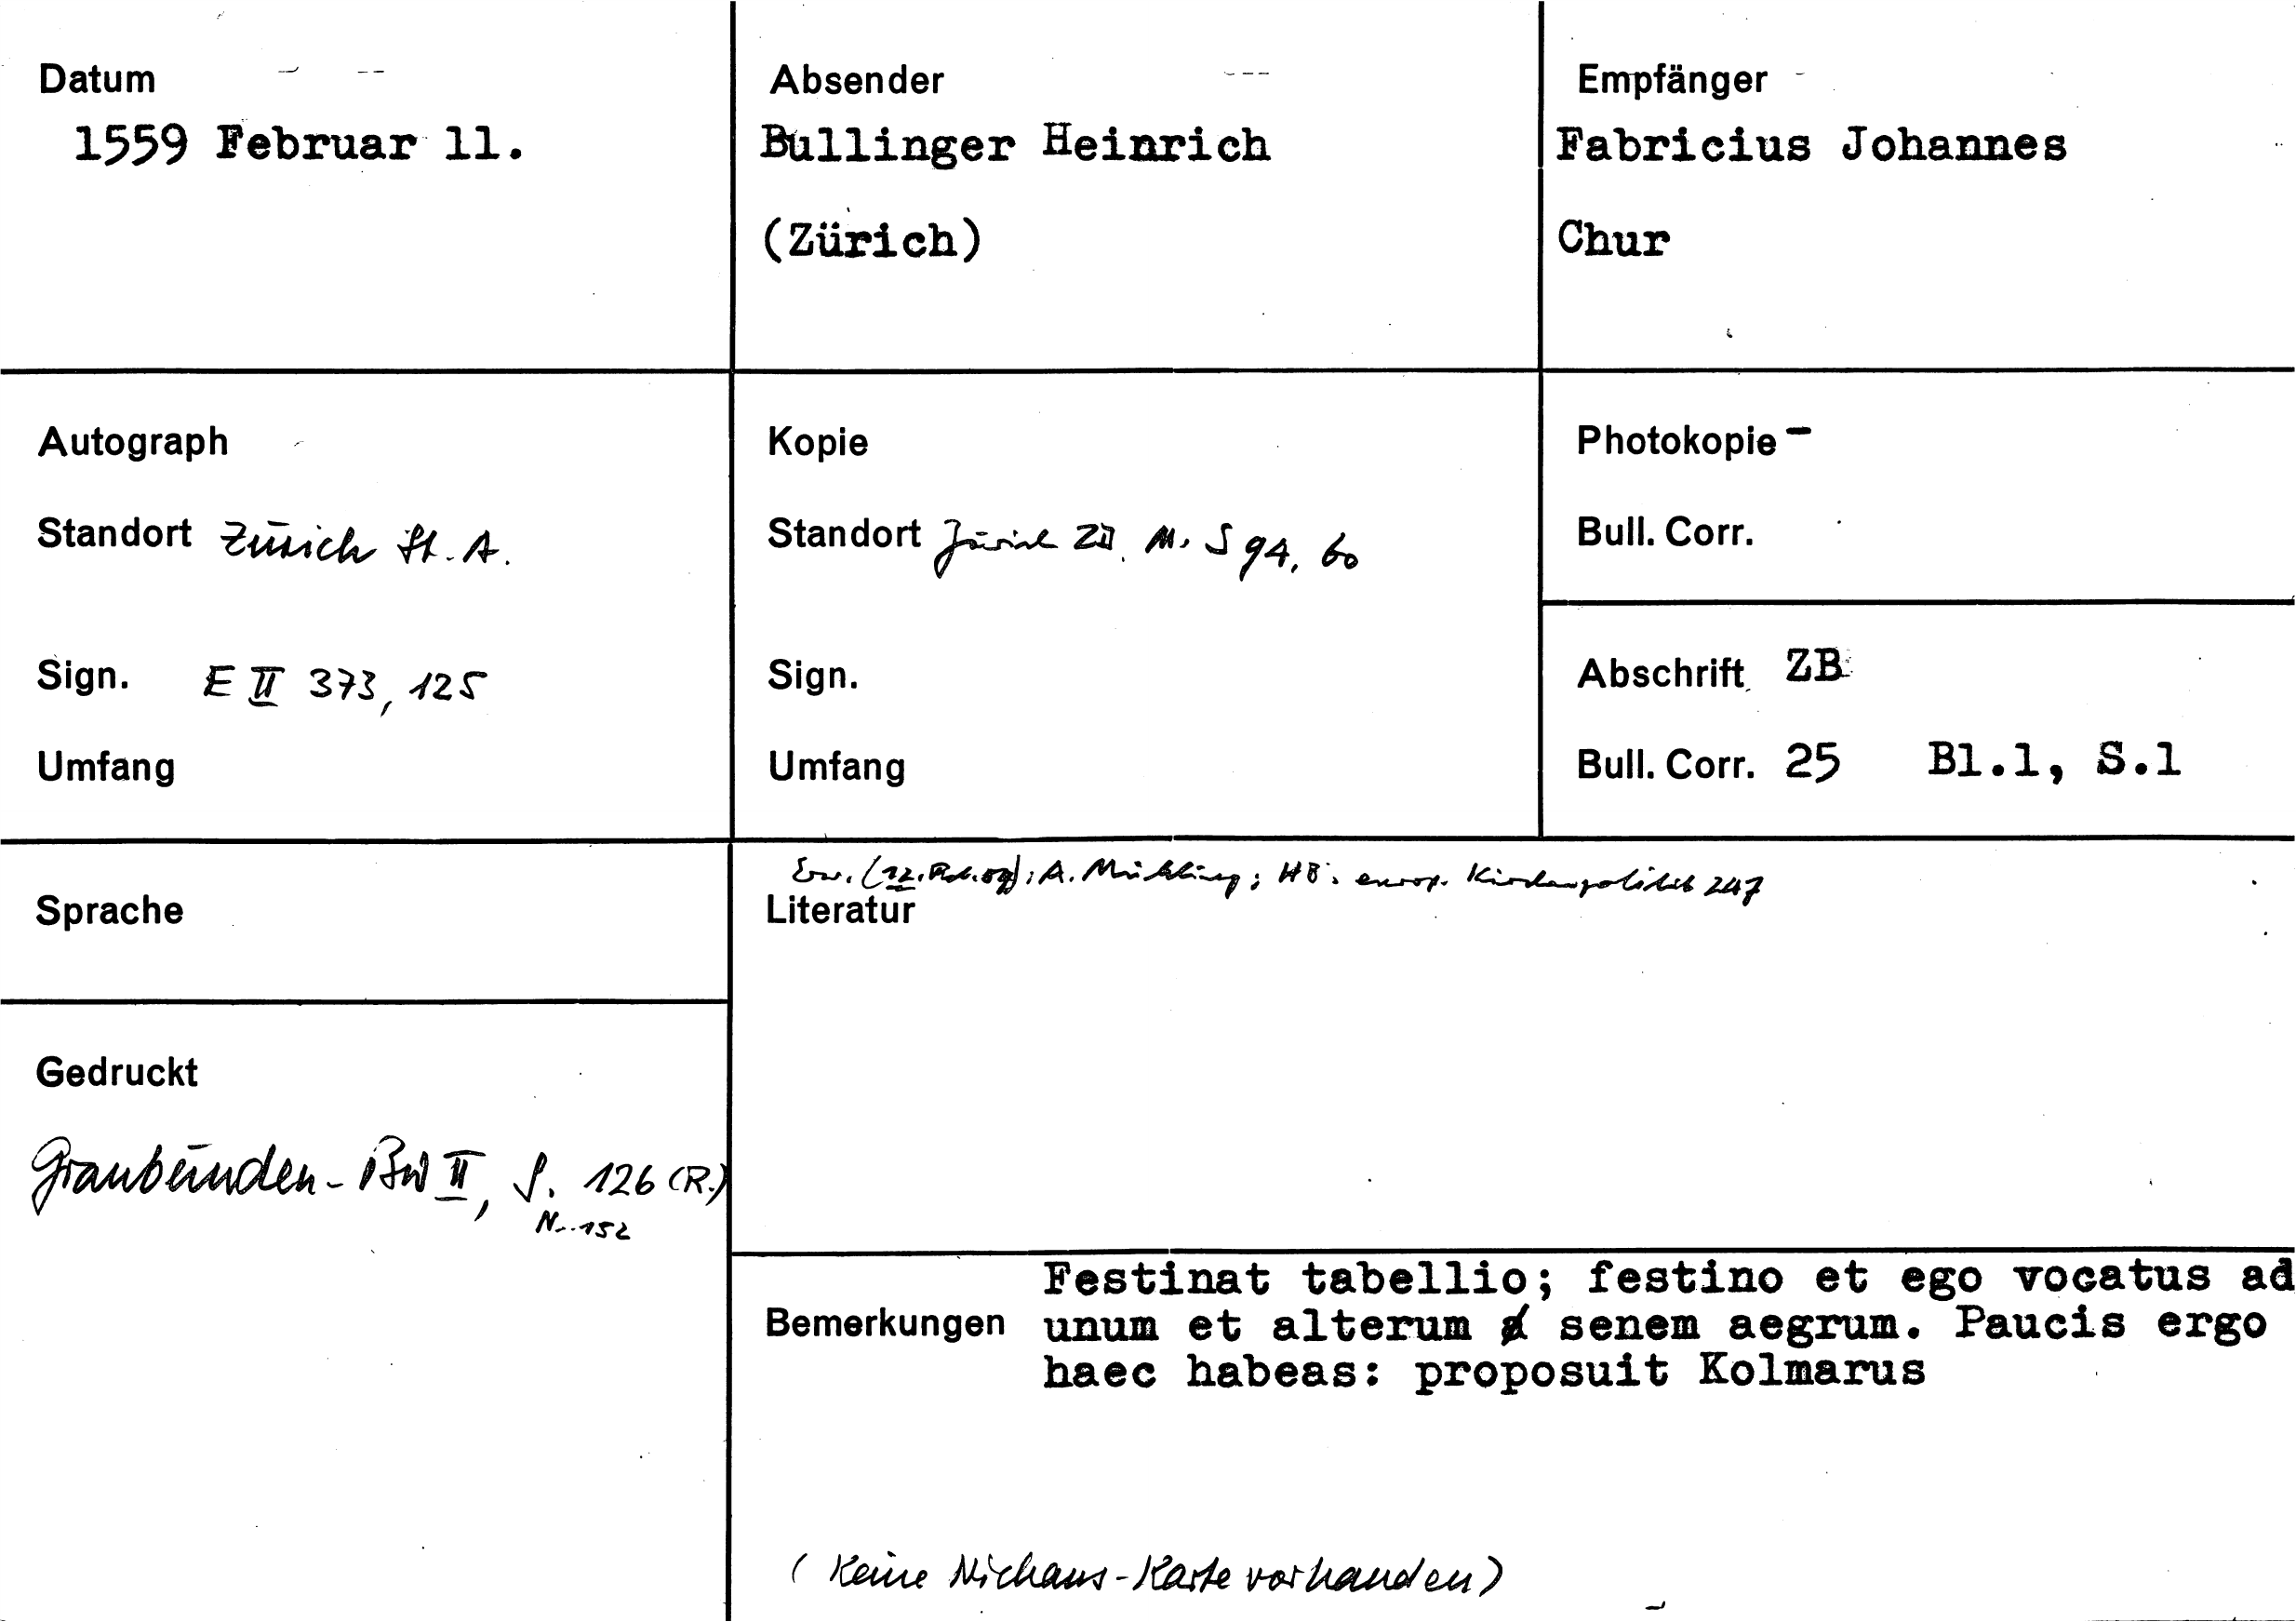 Datum
1559 Februar 11.
Absender
Bullinger Heinrich
(Zürich)
Empfänger
Fabricius Johannes
Chur
Autograph
Standort Zürich St. A.
Sign. E II 373, 125
Umfang
Kopie
Standort Zürich ZB. Ms S 94, 60
Sign.
Umfang
Photokopie -
Bull. Corr.
Abschrift ZB
Bull. Corr. 25 Bl.1, S.1
Sprache
Gedruckt
Graubünden-BW II, S. 126 (R.)
Nr. 152
Erw. A. Mühling; HB. europ. Kirchenpolitik 247
Literatur
Festinat tabellio; festino et ego vocatus ad
Bemerkungen unum et alterum senem aegrum. Paucis ergo
haec habeas: proposuit Kolmarus
(Keine Niehaus-Karte vorhanden)